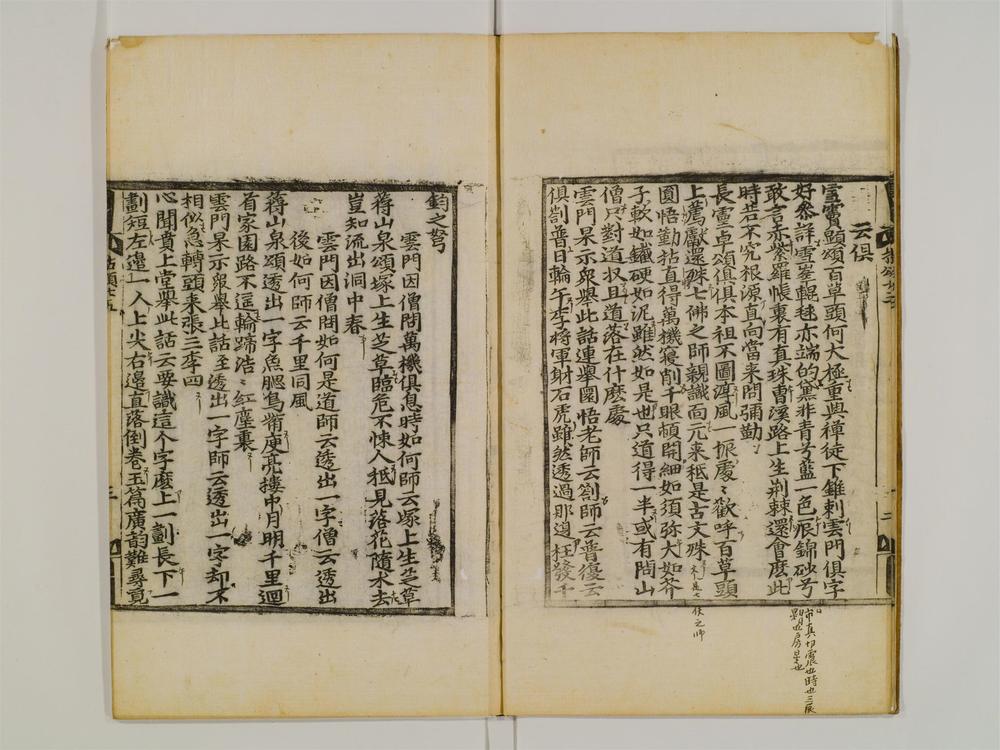 云俱
霊霄顕頌百草頭何大極重與禪徒下錐刺雲門俱字
好叅詳雪峯輥毬亦端的黛非青兮藍一色辰錦砂兮
敢言赤紫羅帳裏有真珠曹溪路上生荆棘還會麽此
時若不究根源直向當来問彌勒
長霊卓頌俱俱本祖不圖渾風一振處〻歡呼百草頭
上薦獻還殊七佛之師親識面元来秪是古文殊
圓悟勤拈直得萬機寢削千眼頓開細如須弥大如芥
子軟如鐵硬如泥雖然如是也只道得一半或有問山
僧只對道収且道落在什麽處
雲門杲示衆舉此話連舉圜悟老師云劄師云普復云
俱劄普日輪午李將軍射石虎雖然透過那邊枉發千
市真切震也時也三辰
房星也
鈞之弩
雲門因僧問萬機俱息時如何師云塚上生芝草
蔣山泉頌塚上生芝草臨危不悚人秪見落花隨水去
豈知流出洞中春
雲門因僧問如何是道師云透出一字僧云透出
後如何師云千里同風
蔣山泉頌透出一字魚腮鳥觜庾亮摟中月明千里迴
首家園路不遥輪蹄浩〻紅塵裏
雲門杲示衆舉此話至透出一字師云透出一字却不
相似急轉頭来張三李四
心聞賁上堂舉此話云要識這个字麽上一劃長下一
劃短左邊一入上尖右邊直落倒卷玉篇廣韵難尋覓